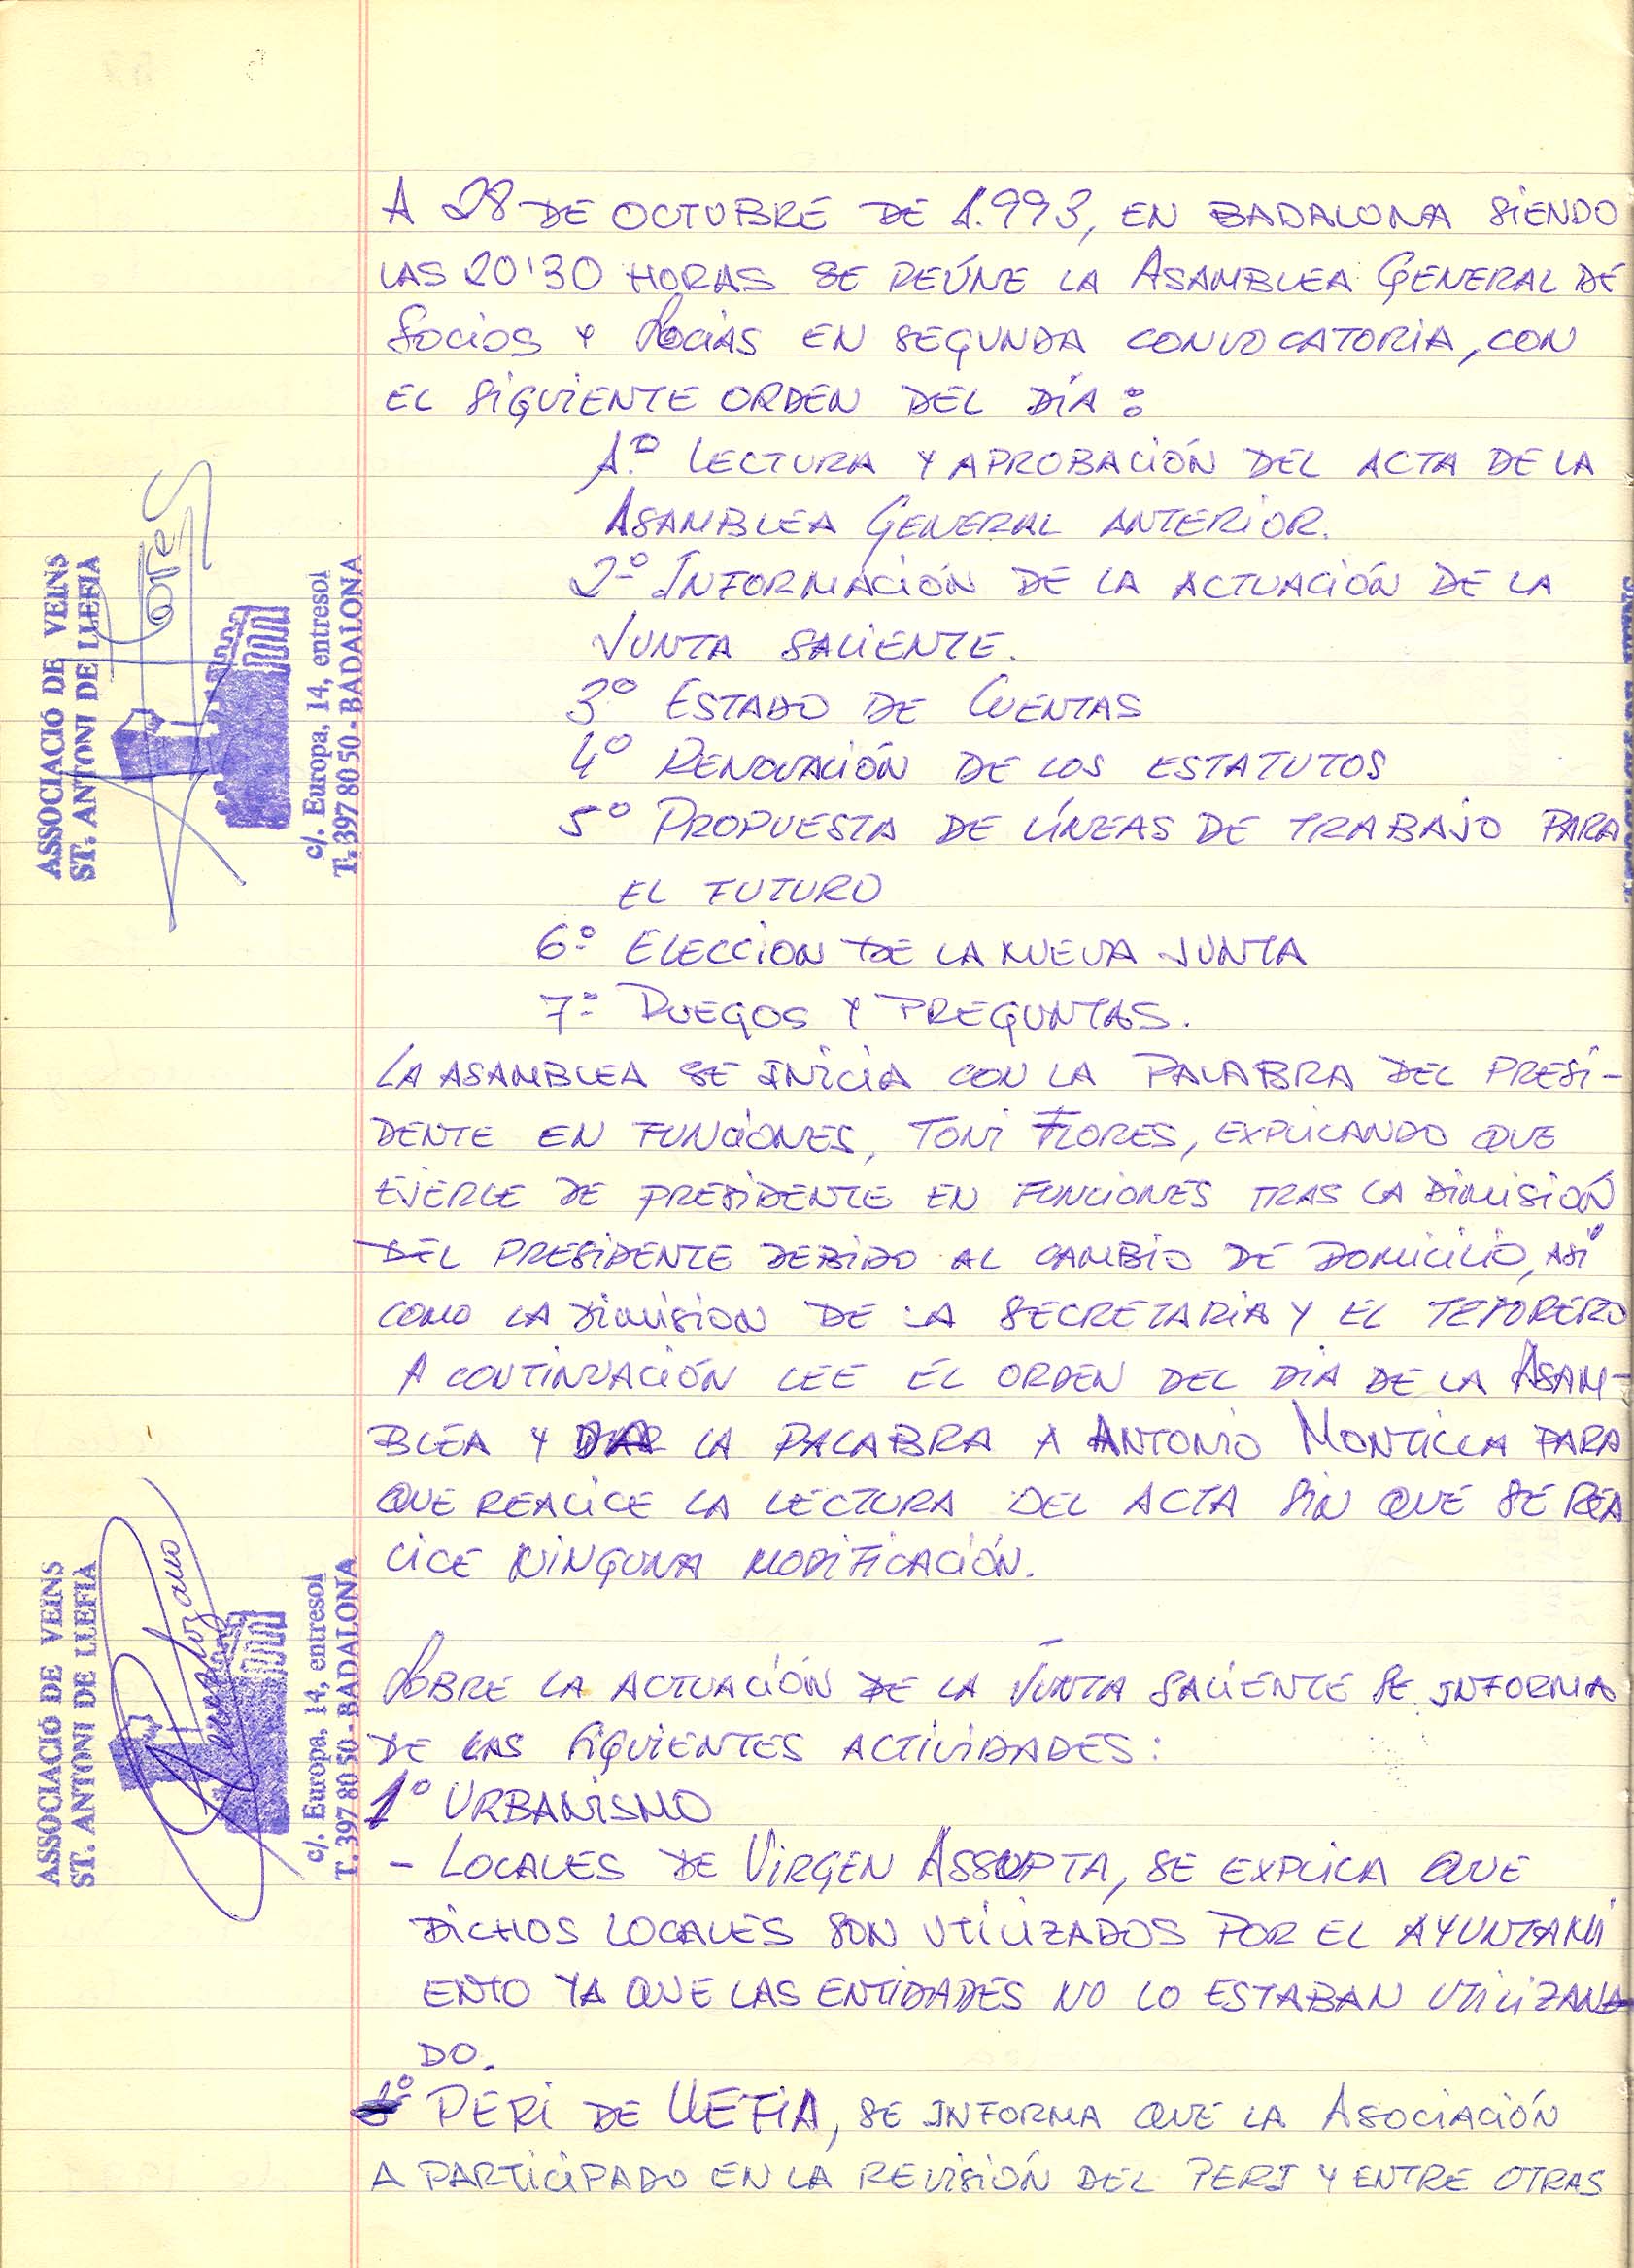 A 28 DE OCTUBRE DE 1.993, EN BADALONA SIENDO
LAS 20'30 HORAS SE REÚNE LA ASAMBLEA GENERAL DE
SOCIOS Y SOCIAS EN SEGUNDA CONVOCATORIA, CON
EL SIGUIENTE ORDEN DEL DÍA:
1.º LECTURA Y APROBACIÓN DEL ACTA DE LA
ASAMBLEA GENERAL ANTERIOR.
2º INFORMACIÓN DE LA ACTUACIÓN DE LA
JUNTA SALIENTE.
3º ESTADO DE CUENTAS
4º RENOVACIÓN DE LOS ESTATUTOS
5º PROPUESTA DE LÍNEAS DE TRABAJO PARA
EL FUTURO
6º ELECCION DE LA NUEVA JUNTA
7º RUEGOS Y PREGUNTAS.
LA ASAMBLEA SE INICIA CON LA PALABRA DEL PRESI-
DENTE EN FUNCIONES, TONI FLORES, EXPLICANDO QUE
EJERCE DE PRESIDENTE EN FUNCIONES TRAS LA DIMISIÓN
DEL PRESIDENTE DEBIDO AL CAMBIO DE DOMICILIO, ASÍ
COMO LA DIMISION DE LA SECRETARIA Y EL TESORERO
A CONTINUACIÓN LEE EL ORDEN DEL DIA DE LA ASAM-
BLEA Y DA LA PALABRA A ANTONIO MONTILLA PARA
QUE REALICE LA LECTURA DEL ACTA SIN QUE SE REA
LICE NINGUNA MODIFICACIÓN.
SOBRE LA ACTUACIÓN DE LA JUNTA SALIENTE SE INFORMA
DE LAS SIGUIENTES ACTIVIDADES:
1º URBANISMO
- LOCALES DE VIRGEN ASSUPTA, SE EXPLICA QUE
DICHOS LOCALES SON UTILIZADOS POR EL AYUNTAMI
ENTO YA QUE LAS ENTIDADES NO LO ESTABAN UTILIZAN
DO.
PERI DE LLEFIA, SE INFORMA QUE LA ASOCIACIÓN
A PARTICIPADO EN LA REVISIÓN DEL PERI Y ENTRE OTRAS
ASSOCIACIÓ DE VEINS
ST. ANTONI DE LLEFIÀ
Flores
c/. Europa, 14, entresol
T. 397 80 50 - BADALONA
ASSOCIACIÓ DE VEINS
ST. ANTONI DE LLEFIÀ
Lozano
c/. Europa, 14, entresol
T. 397 80 50 - BADALONA